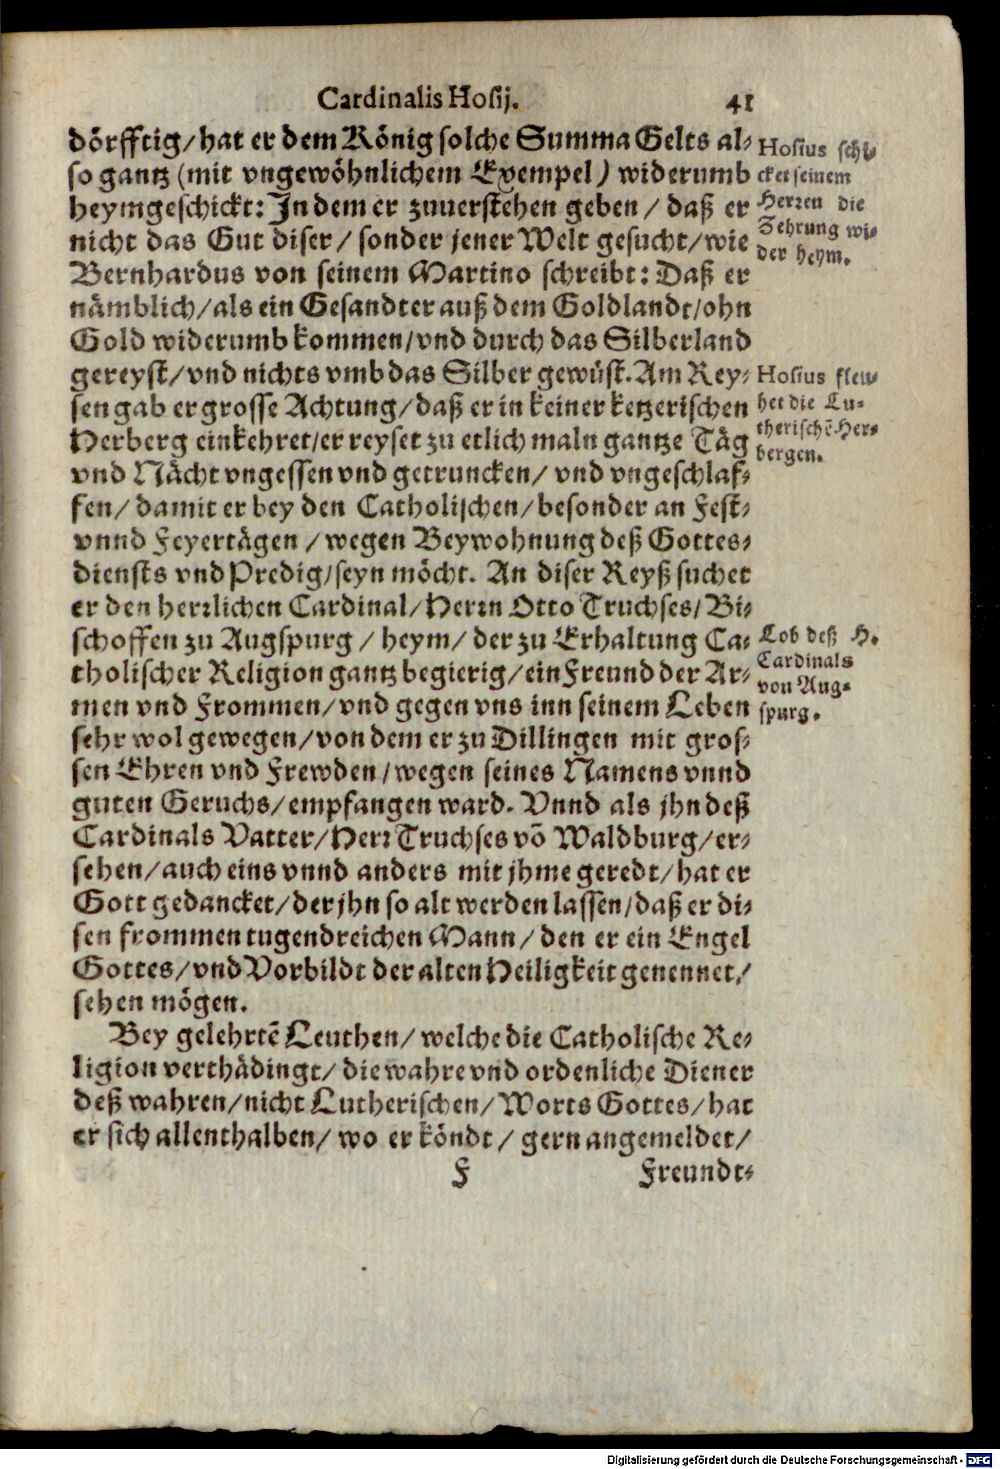 Cardinalis Hosij. 41
dörfftig/hat er dem König solche Summa Gelts al-
so gantz (mit vngewöhnlichem Exempel) widerumb
heymgeschickt: In dem er zuuerstehen geben/ daß er
nicht das Gut diser/ sonder jener Welt gesucht/wie
Bernhardus von seinem Martino schreibt: Daß er
nämblich/als ein Gesandter auß dem Goldlandt/ohn
Gold widerumb kommen/vnd durch das Silberland
gereyst/vnd nichts vmb das Silber gewüst. Am Rey-
sen gab er grosse Achtung/daß er in keiner ketzerischen
Herberg einkehret/er reyset zu etlich maln gantze Täg
vnd Nächt vngessen vnd getruncken/ vnd vngeschlaf-
fen/ damit er bey den Catholischen/besonder an Fest-
vnnd Feyertägen /wegen Beywohnung deß Gottes-
diensts vnd Predig/seyn möcht. An diser Reyß suchet
er den herrlichen Cardinal/Herrn Otto Truchses/Bi-
schoffen zu Augspurg / heym/ der zu Erhaltung Ca-
tholischer Religion gantz begierig/ein Freund der Ar-
men vnd Frommen/vnd gegen vns inn seinem Leben
sehr wol gewegen/von dem er zu Dillingen mit gros-
sen Ehren vnd Frewden/wegen seines Namens vnnd
guten Geruchs/empfangen ward. Vnnd als jhn deß
Cardinals Vatter/Herr Truchses võ Waldburg/er-
sehen/auch eins vnnd anders mit jhme geredt/hat er
Gott gedancket/der jhn so alt werden lassen/daß er di-
sen frommen tugendreichen Mann/den er ein Engel
Gottes/vnd Vorbildt der alten Heiligkeit genennet/
sehen mögen.
Bey gelehrtẽ Leuthen/welche die Catholische Re-
ligion verthädingt/die wahre vnd ordenliche Diener
deß wahren/nicht Lutherischen/Worts Gottes/hat
er sich allenthalben/ wo er köndt/ gern angemeldet/
F Freundt-
Hosius schi-
cket seinem
Herren die
Zehrung wi-
der heym.
Hosius fleu-
het die Lu-
therischẽ Her-
bergen.
Lob deß H.
Cardinals
von Aug-
spurg.
Digitalisierung gefördert durch die Deutsche Forschungsgemeinschaft - DFG